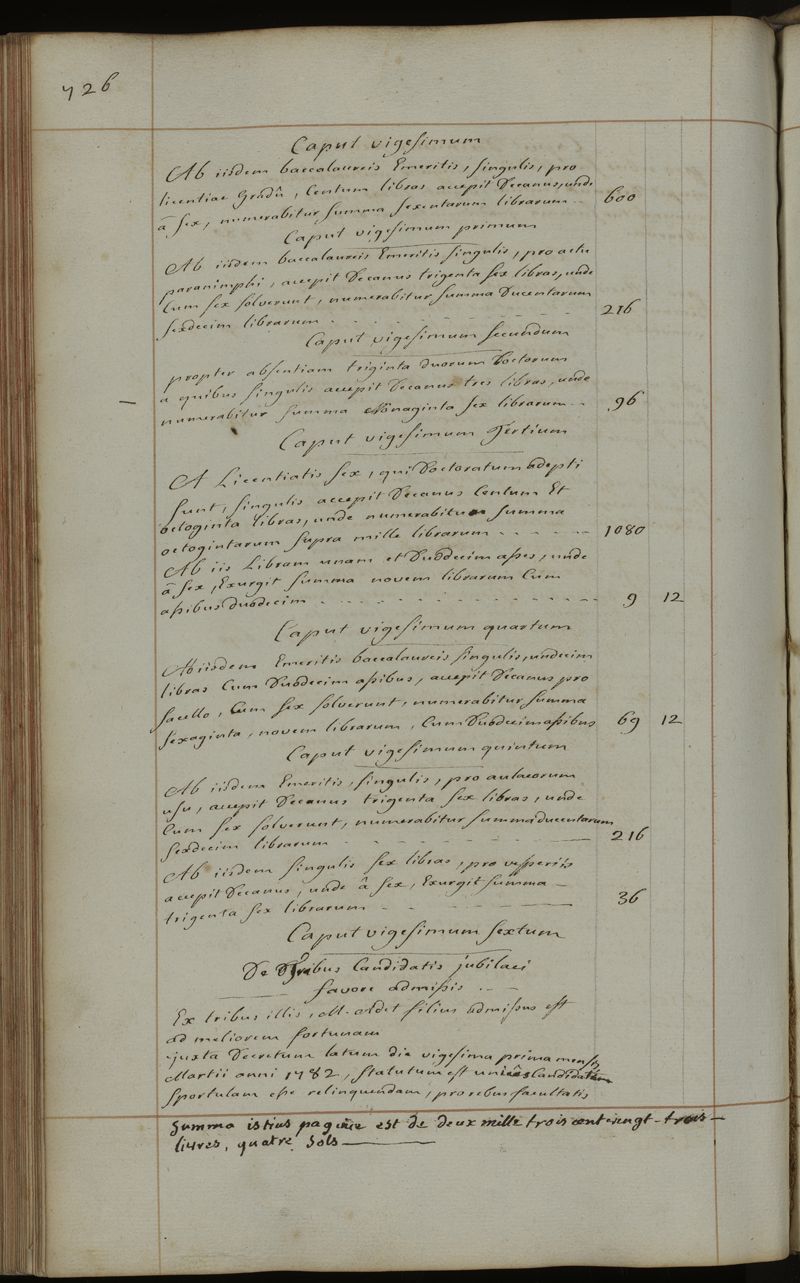 726
Caput vigesimum
Ab iisdem baccalaureis Emeritis, singulis, pro
licentiae Gradû, Centum libras accepit Decanus, unde
â sex, numerabitur summa sexentarum librarum -- 600
Caput vigesimum primum
Ab iisdem baccalaureis Emeritis singulis, pro actu
paranimphi, accepit Decanus trigenta sex libras, unde
Cum sex solverunt, numerabitur summa Ducentarum
sexdecim librarum - - - - - - 216
Caput vigesimum secundum
propter absentiam triginta duorum Doctorum
a quibus singulis accepit Decanus tres libras, unde
numerabitur summa Nonaginta sex librarum -- 96
Caput vigesimum Tertium
A Licentiatis sex, qui Doctoratum adepti
sunt, singulis accepit Decanus Centum Et
octoginta libras, unde numerabitur summa
octogintarum supra mille librarum - - - - 1080
Ab iis Libram unam et Duodecim asses, unde
â sex, Exurgit summa novem librarum Cum
assibus duodecim - - - - - - 9 12
Caput vigesimum quartum
Ab iisdem Emeritis baccalaureis singulis, undecim
libras Cum Duodecim assibus, accepit Decanus pro
sacello, Cum sex solverunt, numerabitur summa
sexaginta, novem librarum, Cum Duodecim assibus 69 12
Caput vigesimum quintum
Ab iisdem Emeritis, singulis, pro aulaeorum
usu, accepit Decanus trigenta sex libras, unde
Cum sex solverunt, numerabitur summa ducentarum
sexdecim librarum - - - - - 216
Ab iisdem singulis sex libras, pro vesperiis
accepit Decanus, unde â sex, Exurgit summa -
trigenta sex librarum - - - 36
Caput vigesimum sextum
De Tribus Candidatis jubilaei
favore admissis - -
Ex tribus illis, M. Adet filius admissus est
ad meliorem fortunam
juxta Decretum latum die vigesima prima mensis
Martii anni 1782, statutum est
sportulam esse relinquendam, pro rebus facultatis
Summa istius paginae est de deux mille trois cent vingt-trois
livres, quatre sols